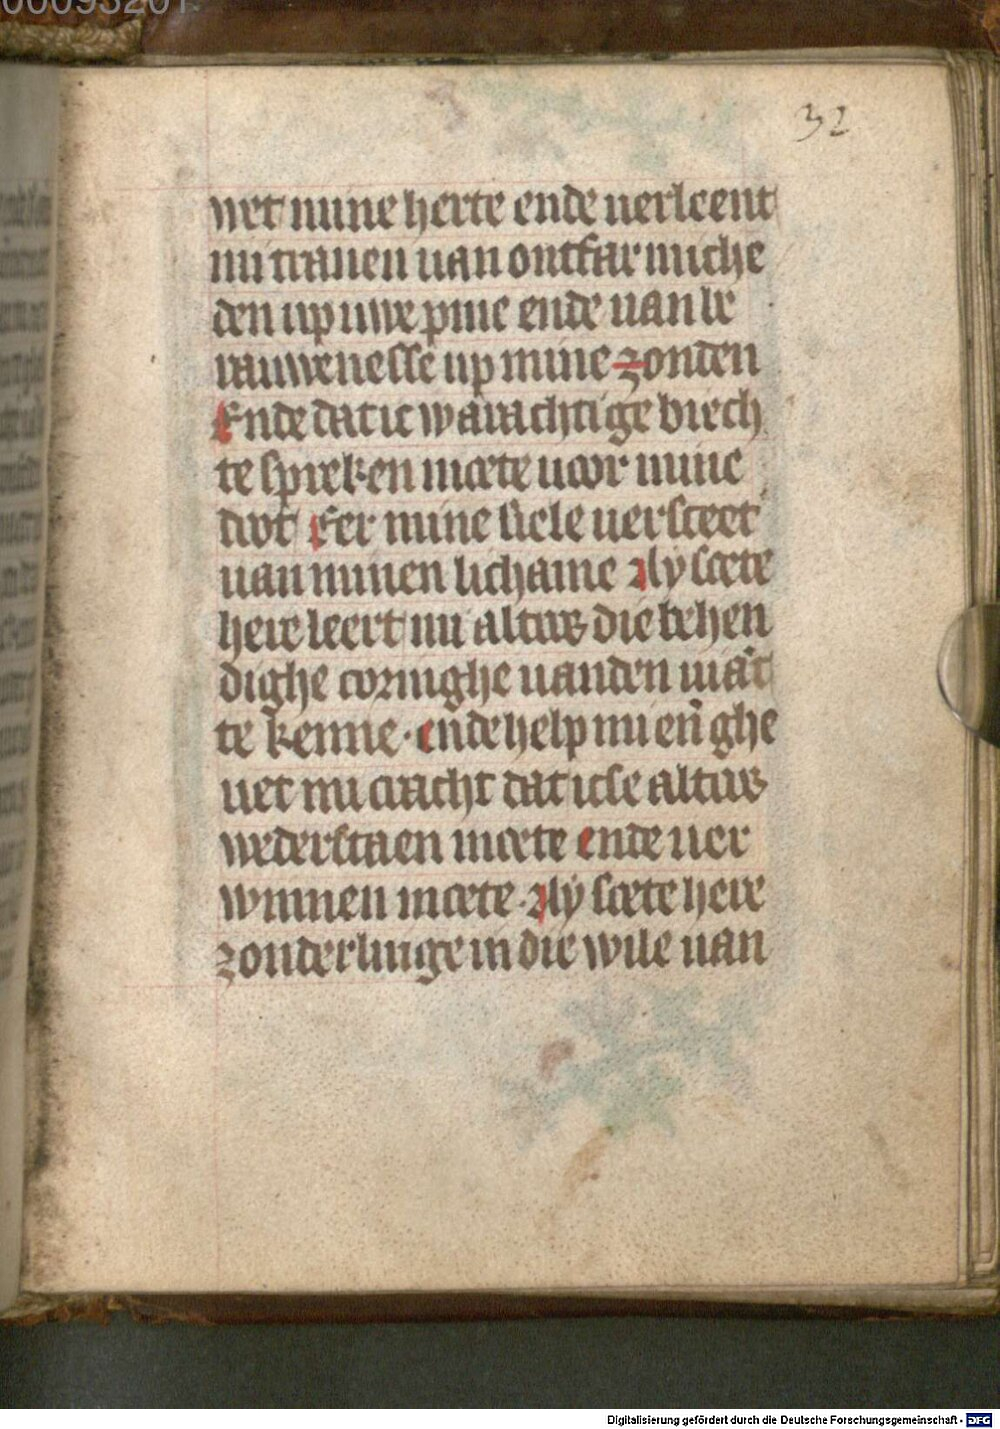 32
wet mine herte ende verleent
mi tranen van ontfarmiche
den up uwe pine ende van be
rauwenesse up mine zonden
Ende dat ic warachtige biech
te spreken moete voor mine
doot Eer mine siele versceet
van minen lichame Ay soete
here leert mi altoos die behen
dighe coringhe vanden viāt
te kenne · ende help mi eñ ghe
vet mi cracht dat icse altoos
wederstaen moete ende ver
winnen moete · Ay soete here
zonderlinge in die wile van
Digitalisierung gefördert durch die Deutsche Forschungsgemeinschaft - DFG